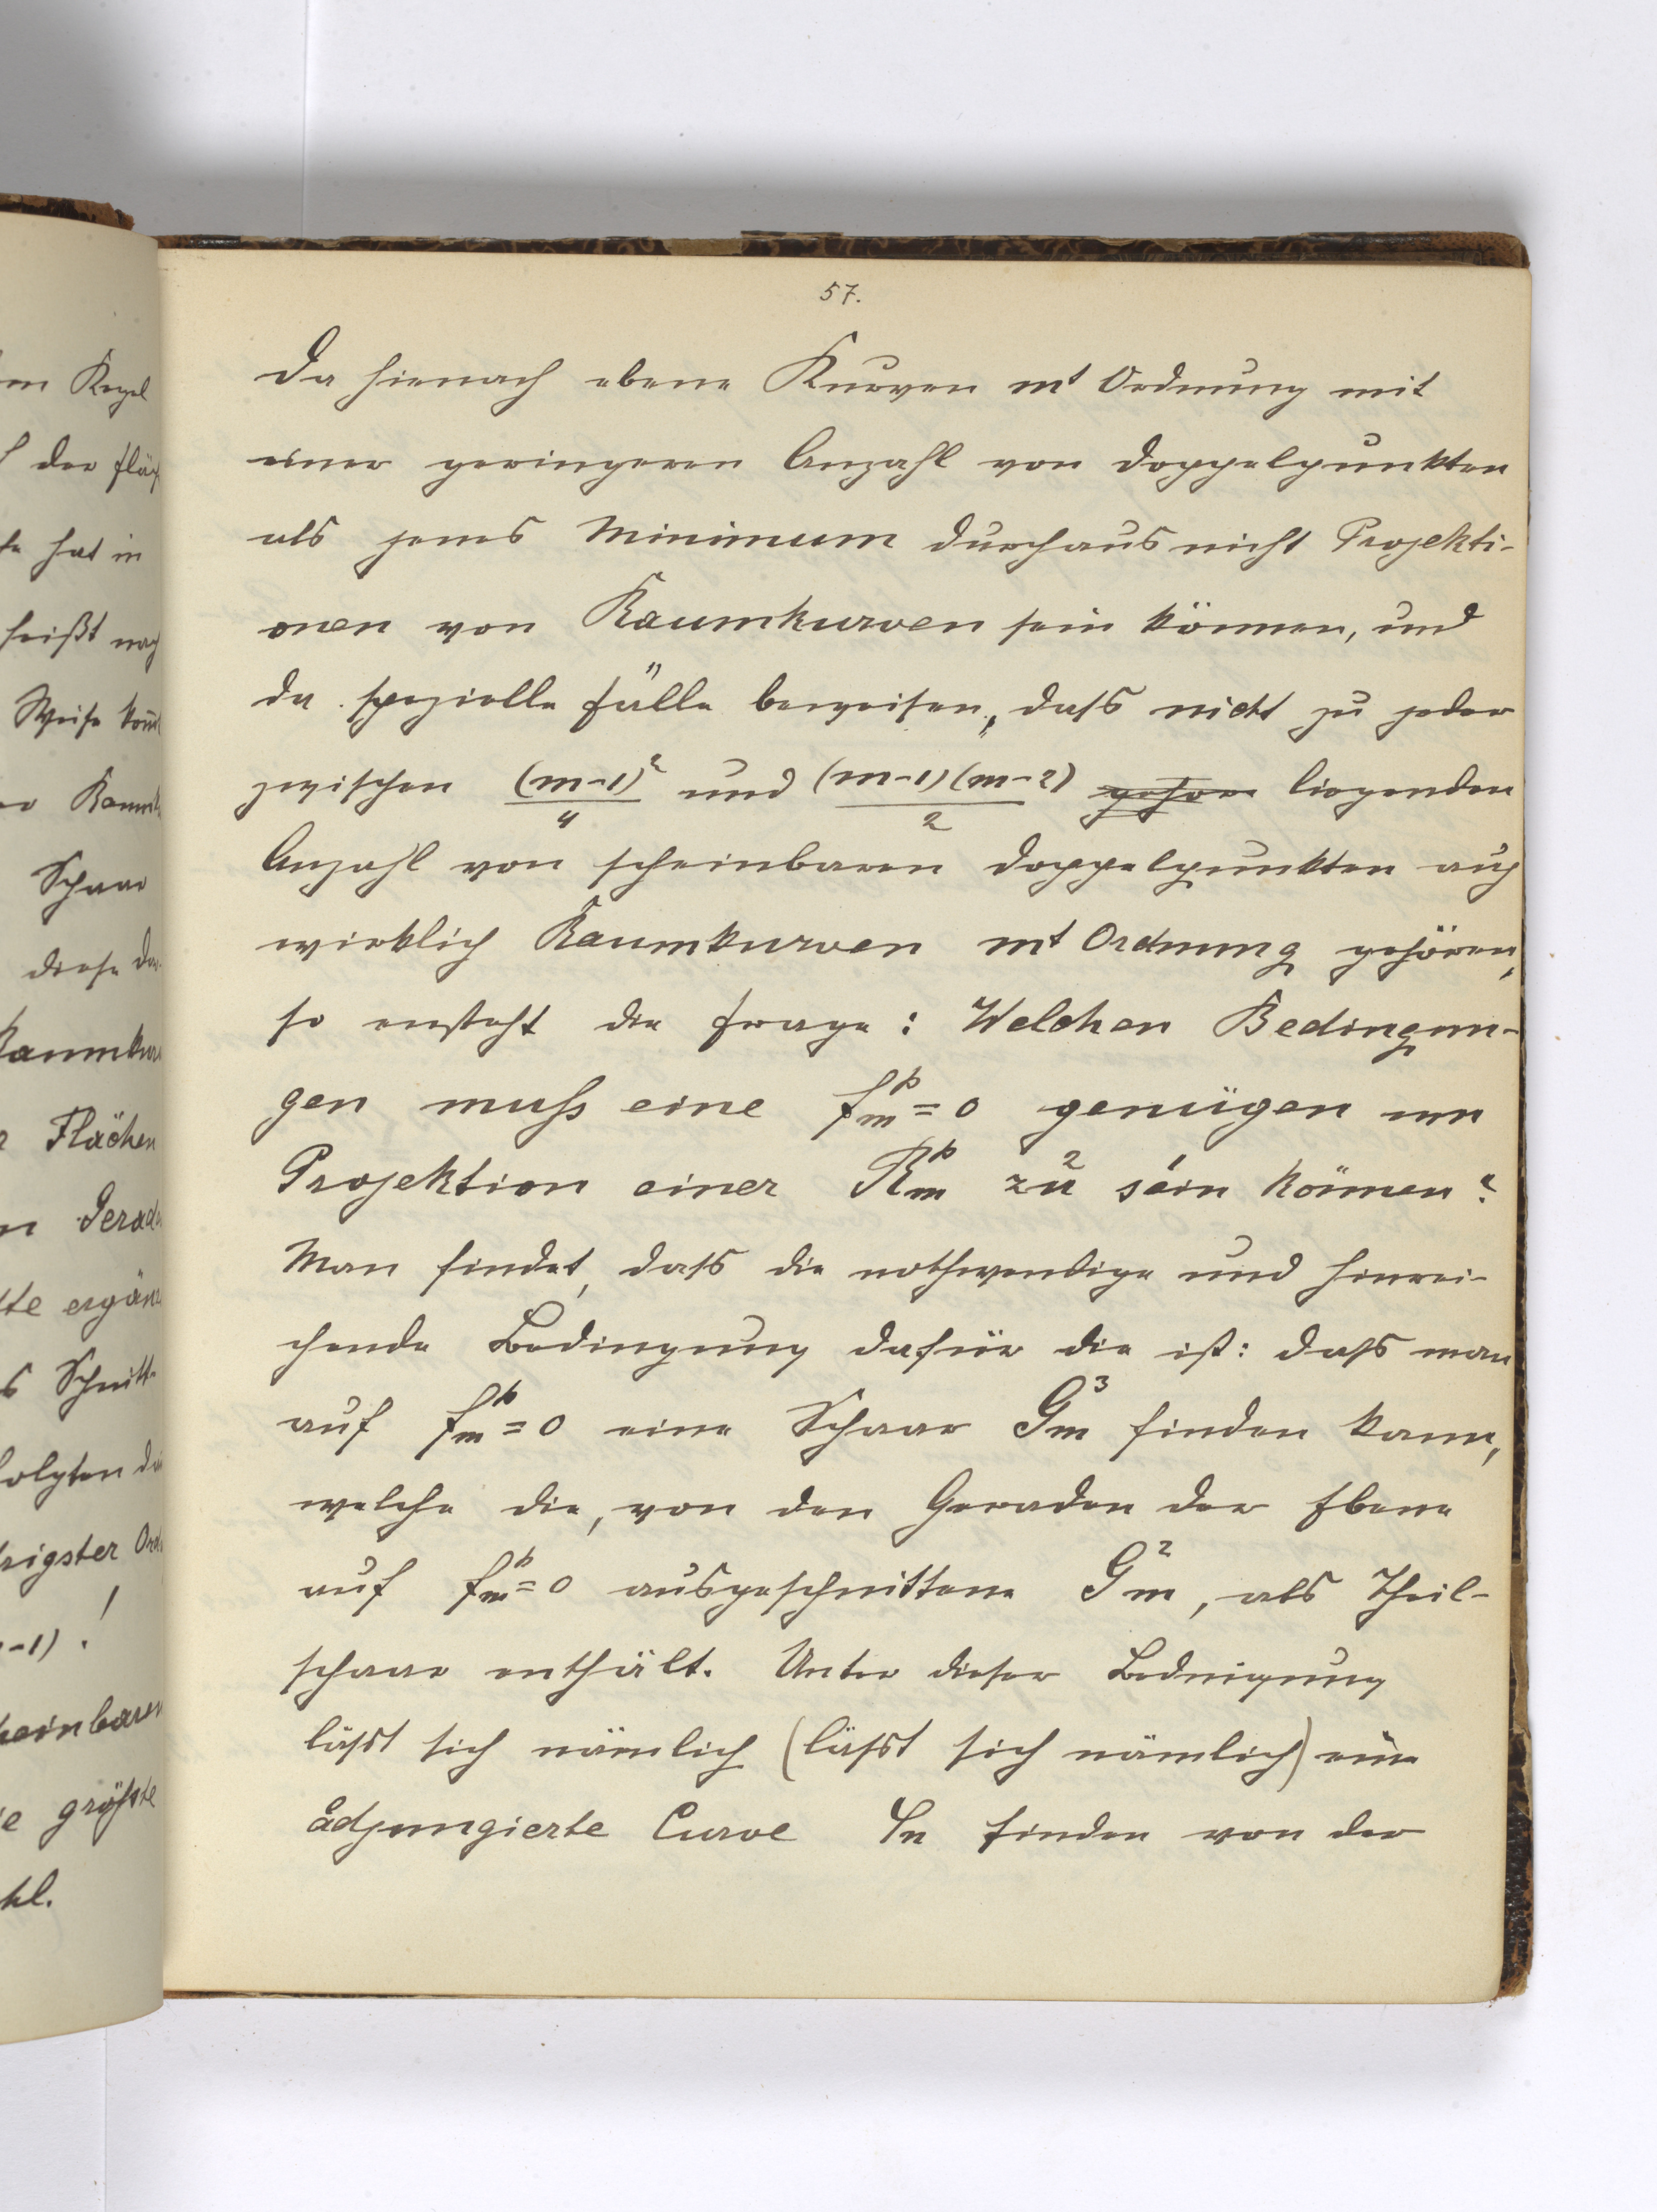 57.
Da hienach ebene Kurven mt Ordnung mit
einer geringeren Anzahl von Doppelpunkten
als jenes Minimum durchaus nicht Projekti-
onen von Raumkurven sein können, und
da spezielle Fälle beweisen, daſs nicht zu jeder
zwischen (m-1)²/4 und (m-1)(m-2)/2 liegenden
Anzahl von scheinbaren Doppelpunkten auch
wirklich Raumkurven mt Ordnung gehören,
so ensteht die Frage: Welchen Bedingun-
gen muſs eine f_m^p = 0 genügen um
Projektion einer R_m^p zu sein können?
Man findet, daſs die nothwendige und hinrei-
chende Bedingung dafür die ist: daſs man
auf f_m^p = 0 eine Schaar G_m^3 finden kann,
welche die, von den Geraden der Ebene
auf f_m^p = 0 ausgeschnittene G_m^2, als Theil-
schaar enthält. Unter dieser Bedingung
läſst sich nämlich (läſst sich nämlich) eine
adjungierte Curve φn finden von der
m Kegel
der Fläch
hat in
heißt nach
Weise kom̄t
Schaar
diese
Raumkur
Flächen
Gerad
te ergänz
s Schnitt-
folgten
rigster Ord
-1).!
heinbaren
e größte
hl.